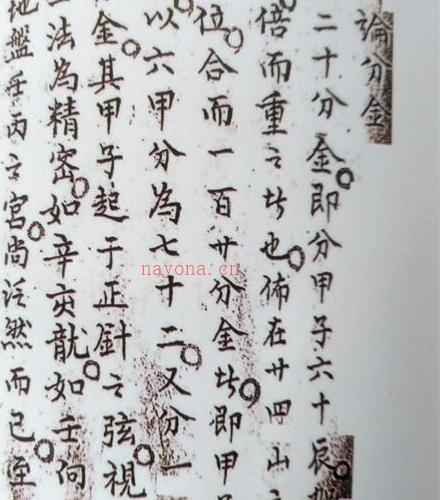 論分金
二十分金即分甲子六十辰
倍而重之者也佈在廿四山
位合而一百廿分金者即甲
以六甲分為七十二又分一
金其甲子起于正針之弦視
法為精密如辛亥龍如壬向
地盤壬丙之宮尚泛然而已至
nayona.cn